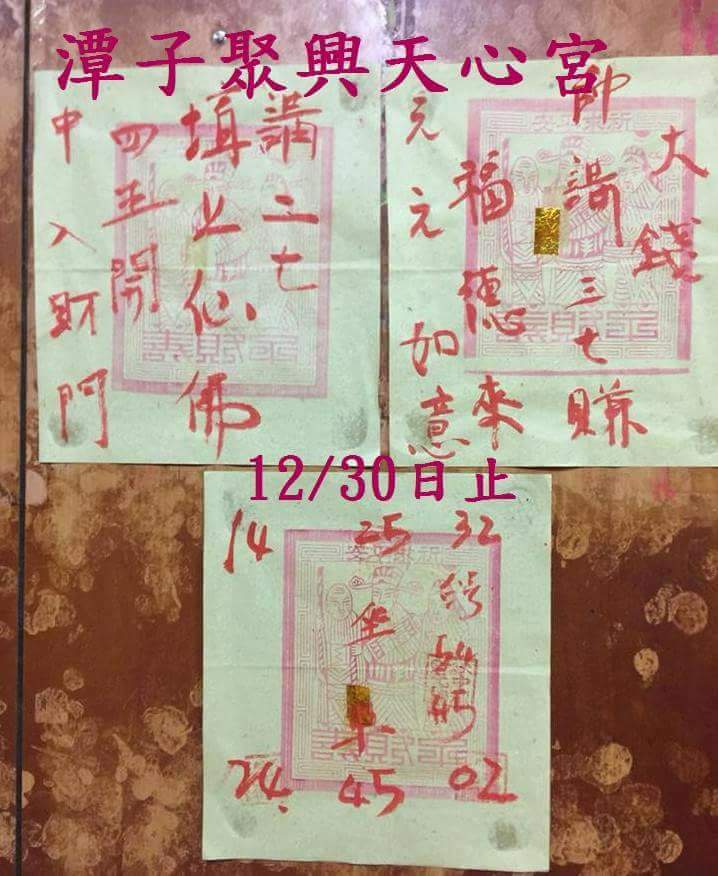 潭子聚興天心宮
大錢
帥
三七賺
福德來
元元如意
二七
填止仙佛
四五開
中入財門
12/30日止
32
25
14
坐
45
02
45
24